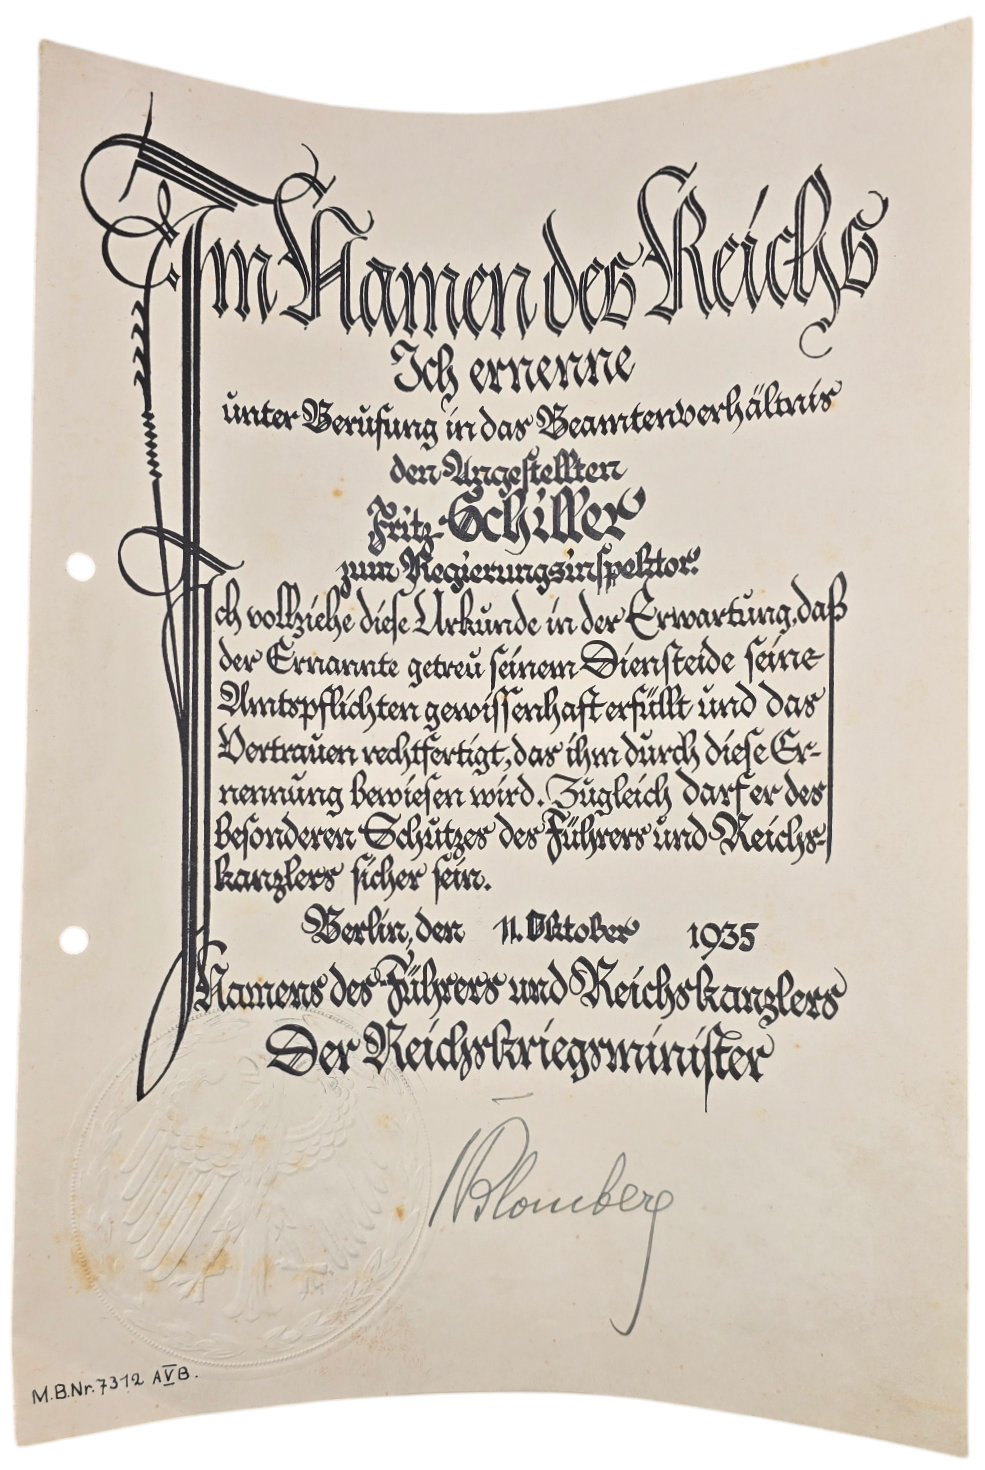 Im Namen des Reichs
Ich ernenne
unter Berufung in das Beamtenverhältnis
den Angestellten
Fritz Schiller
zum Regierungsinspektor.
Ich vollziehe diese Urkunde in der Erwartung, daß
der Ernannte getreu seinem Diensteide seine
Amtspflichten gewissenhaft erfüllt und das
Vertrauen rechtfertigt, das ihm durch diese Er-
nennung bewiesen wird. Zugleich darf er des
besonderen Schutzes des Führers und Reichs-
kanzlers sicher sein.
Berlin, den 11. Oktober 1935
Namens des Führers und Reichskanzlers
Der Reichskriegsminister
v Blomberg
M.B.Nr. 7312 A V B.